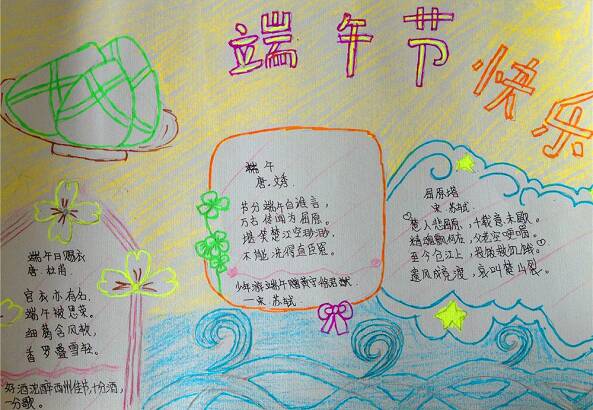 端午节
快乐
端午
唐.文秀
节分端午自谁言,
万古传闻为屈原。
堪笑楚江空渺渺,
不能洗得直臣冤。
少年游端午赠黄守徐君猷
一宋 苏轼
屈原塔
宋 苏轼
楚人悲屈原,千载意未歇。
精魂飘何在,父老空哽咽。
至今仓江上,投饭救饥渴。
遗风成竞渡,哀叫楚山裂。
端午日赐衣
唐 杜甫
宫衣亦有名.
端午被恩荣。
细葛含风软,
香罗叠雪轻。
好酒沈醉西州佳节,十分酒,
一分歌。